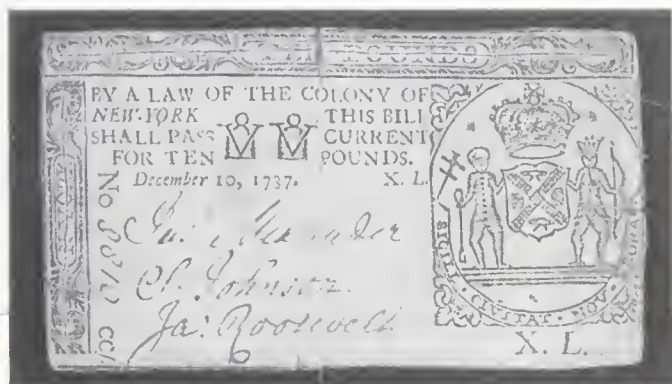 POUNDS
BY A LAW OF THE COLONY OF
NEW-YORK THIS BILL
SHALL PASS CURRENT
FOR TEN POUNDS.
December 10, 1737. X. L.
No
Alexander
Johnson
Ja: Roosevelt
SIGILL CIVITAT NOV
X. L.